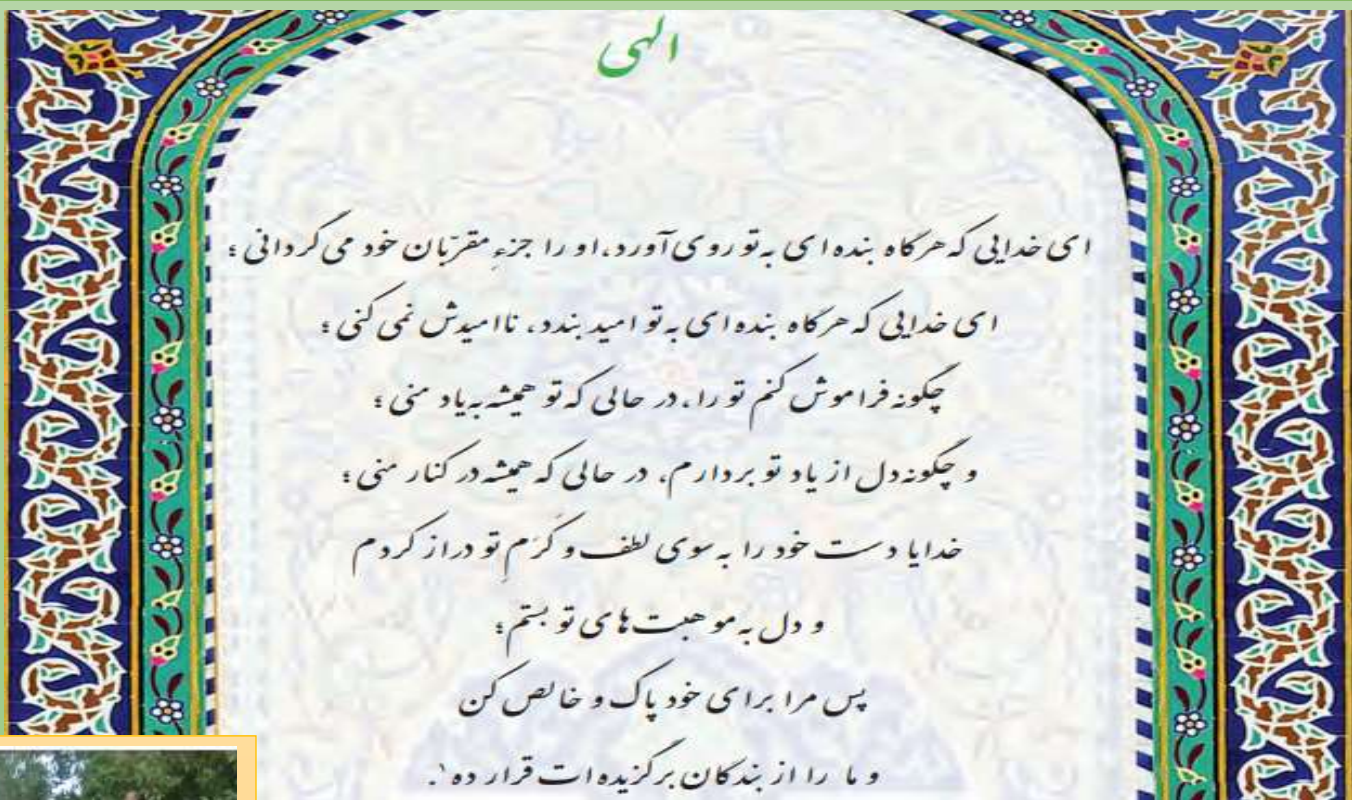 الهی
ای خدایی که هرگاه بنده‌ای به تو روی آورد، او را جزءِ مقرّبان خود می‌گردانی؛
ای خدایی که هرگاه بنده‌ای به تو امید بندد، ناامیدش نمی‌کنی؛
چگونه فراموش کنم تو را، در حالی که تو همیشه به یاد منی؛
و چگونه دل از یاد تو بردارم، در حالی که همیشه در کنار منی؛
خدایا دست خود را به سوی لطف و کَرَمِ تو دراز کردم
و دل به موهبت‌های تو بستم؛
پس مرا برای خود پاک و خالص کن
و ما را از بندگان برگزیده‌ات قرار ده۱.